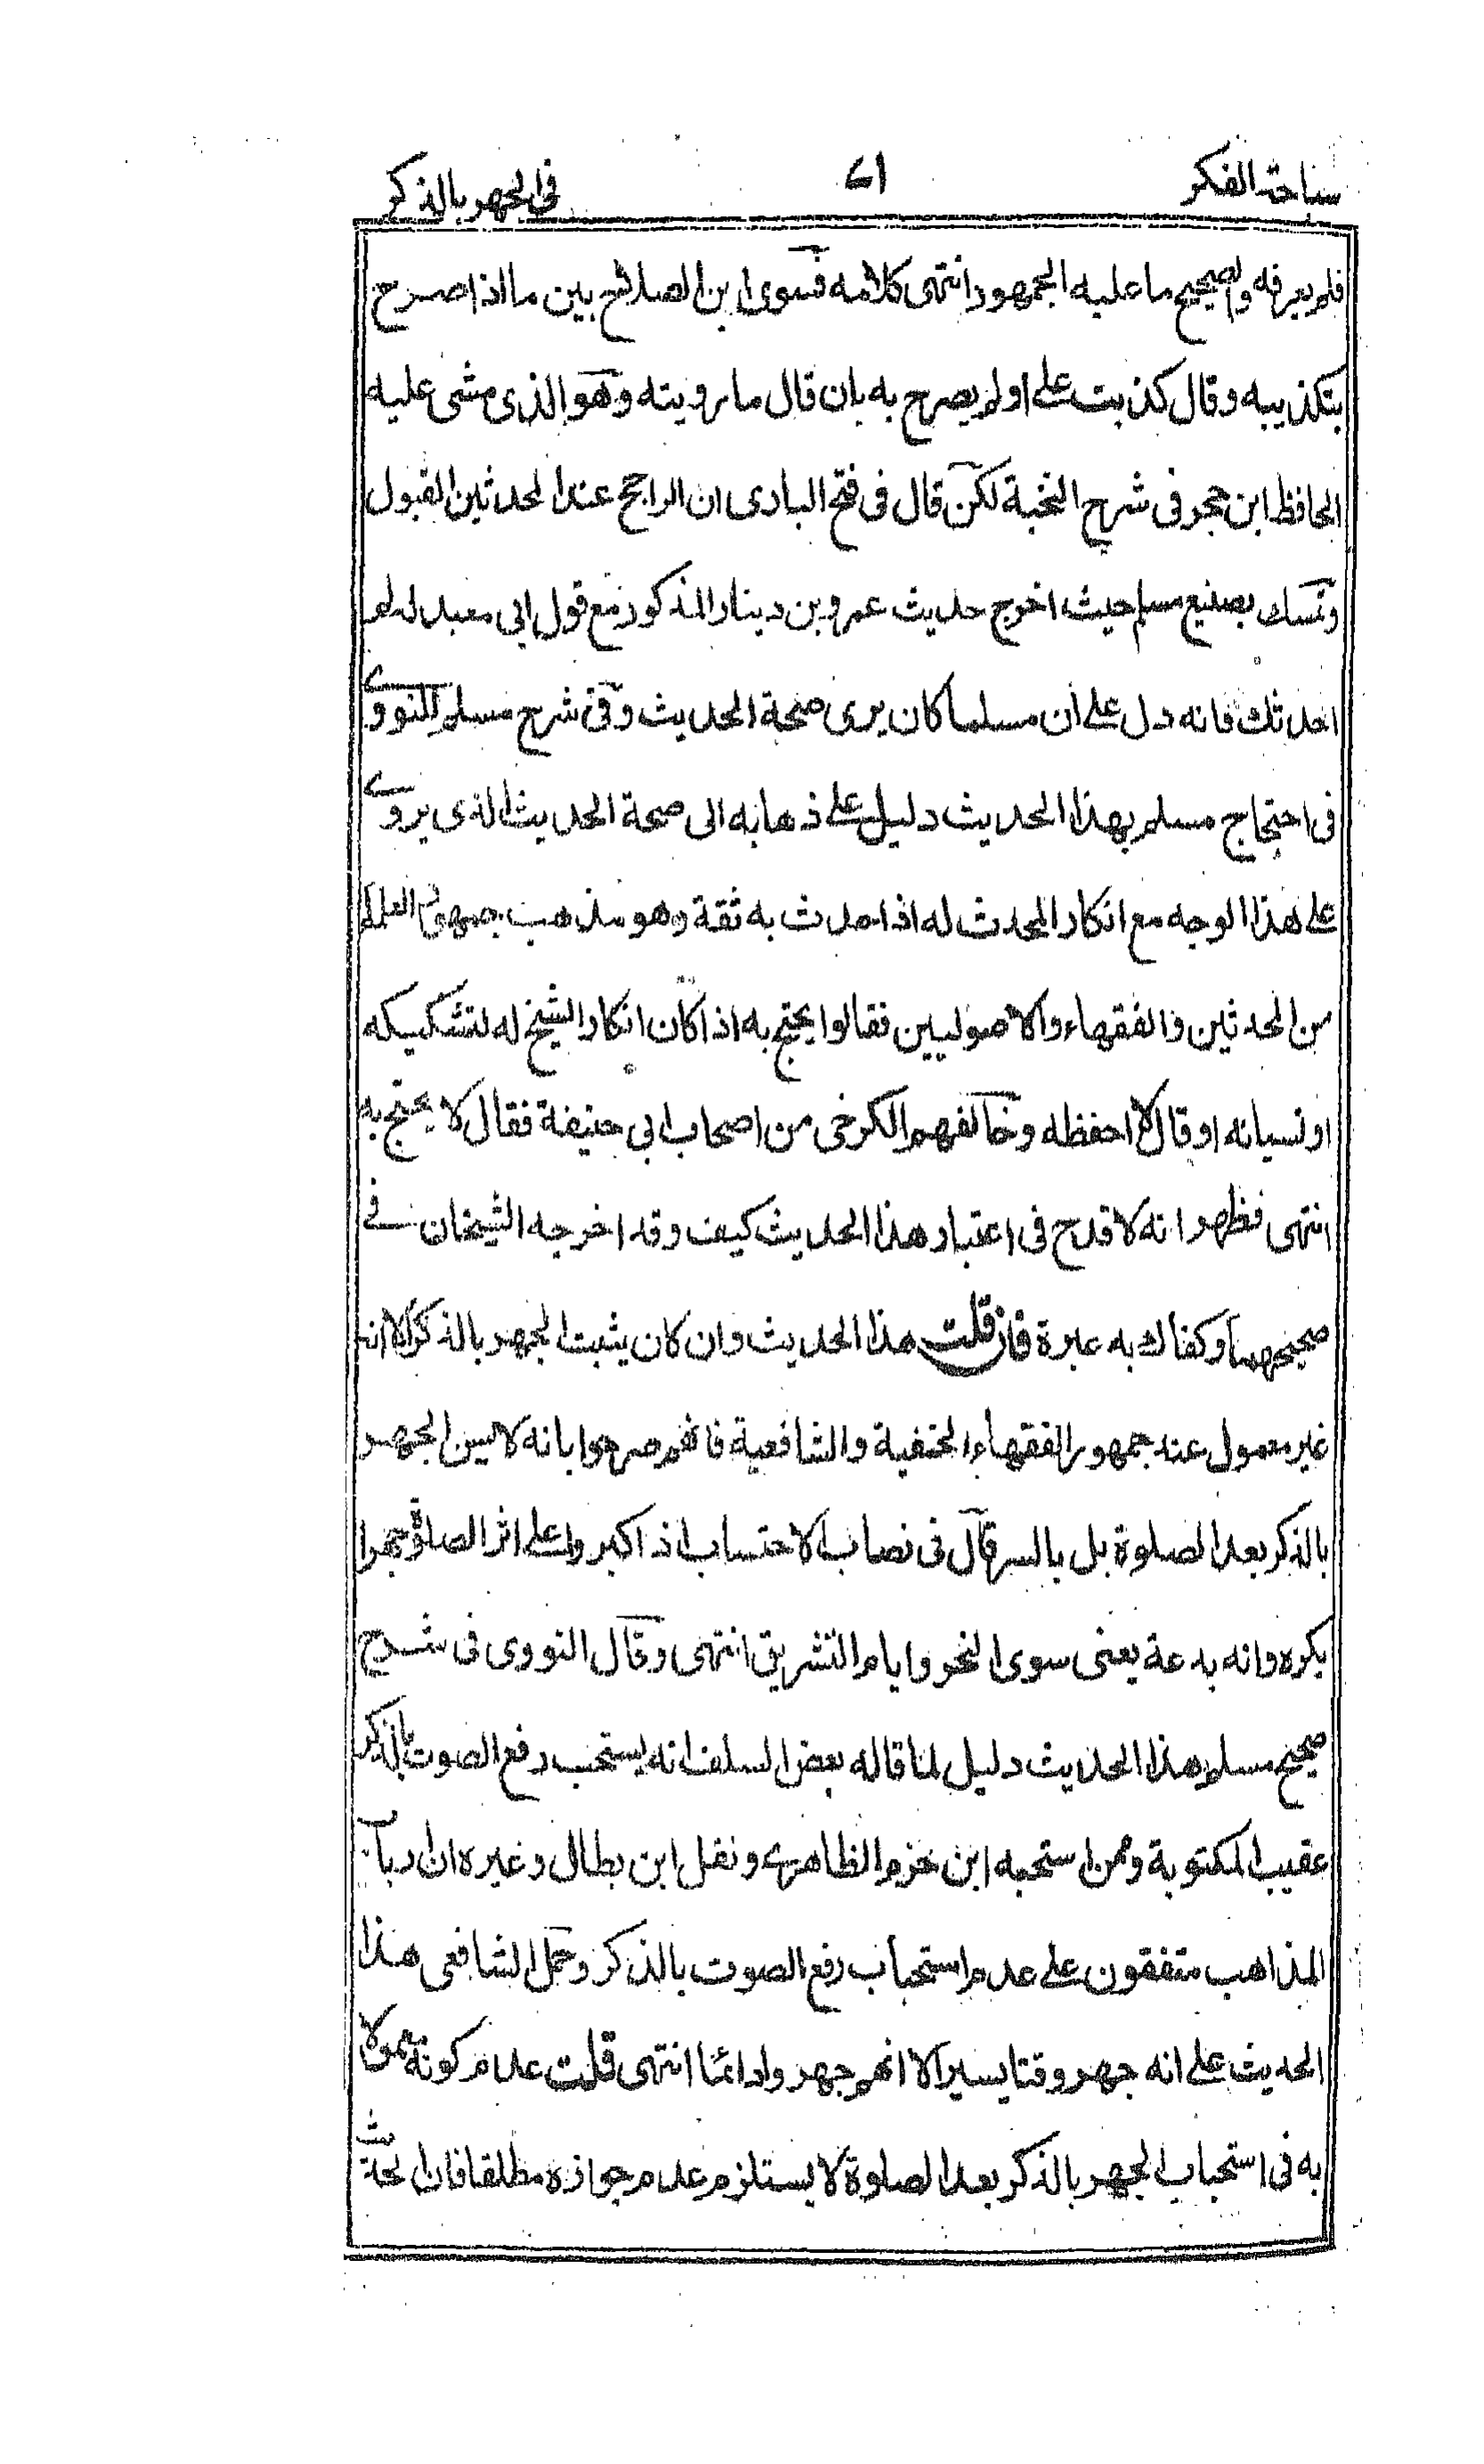 سباحة الفكر ٤١ فى الجهر بالذكر
فلم يعرفه والصحيح ما عليه الجمهور انتهى كلامه فسوى ابن الصلاح بين ما اذا صرح
بتكذيبه وقال كذبت على او لم يصرح به بان قال ما رويته وهو الذى مشى عليه
الحافظ ابن حجر فى شرح النخبة لكن قال فى فتح البارى ان الراجح عند المحدثين القبول
وتمسك بصنيع مسلم حيث اخرج حديث عمرو بن دينار المذكور مع قول ابى معبد له لم
احدثك فانه دل على ان مسلما كان يرى صحة الحديث وفى شرح مسلم للنووى
فى احتجاج مسلم بهذا الحديث دليل على ذهابه الى صحة الحديث الذى يروى
على هذا الوجه مع انكار المحدث له اذا حدث به ثقة وهو مذهب جمهور العلماء
من المحدثين والفقهاء والاصوليين فقالوا يحتج به اذا كان انكار الشيخ له لتشكيكه
او نسيانه او قال لا احفظه وخالفهم الكرخى من اصحاب ابى حنيفة فقال لا يحتج به
انتهى فظهر انه لا قدح فى اعتبار هذا الحديث كيف وقد اخرجه الشيخان فى
صحيحهما وكفاك به عبرة فان قلت هذا الحديث وان كان يثبت الجهر بالذكر الا انه
غير معمول عند جمهور الفقهاء الحنفية والشافعية فانهم صرحوا بانه لا يسن الجهر
بالذكر بعد الصلوة بل بالسر قال فى نصاب الاحتساب اذا كبروا على اثر الصلوة جهرا
يكره وانه بدعة يعنى سوى النحر وايام التشريق انتهى وقال النووى فى شرح
صحيح مسلم هذا الحديث دليل لما قاله بعض السلف انه يستحب رفع الصوت بالذكر
عقيب المكتوبة وممن استحبه ابن حزم الظاهرى ونقل ابن بطال وغيره ان ارباب
المذاهب متفقون على عدم استحباب رفع الصوت بالذكر وحمل الشافعى هذا
الحديث على انه جهر وقتا يسيرا لا انهم جهروا دائما انتهى قلت عدم كونه معمولا
به فى استحباب الجهر بالذكر بعد الصلوة لا يستلزم عدم جوازه مطلقا فان